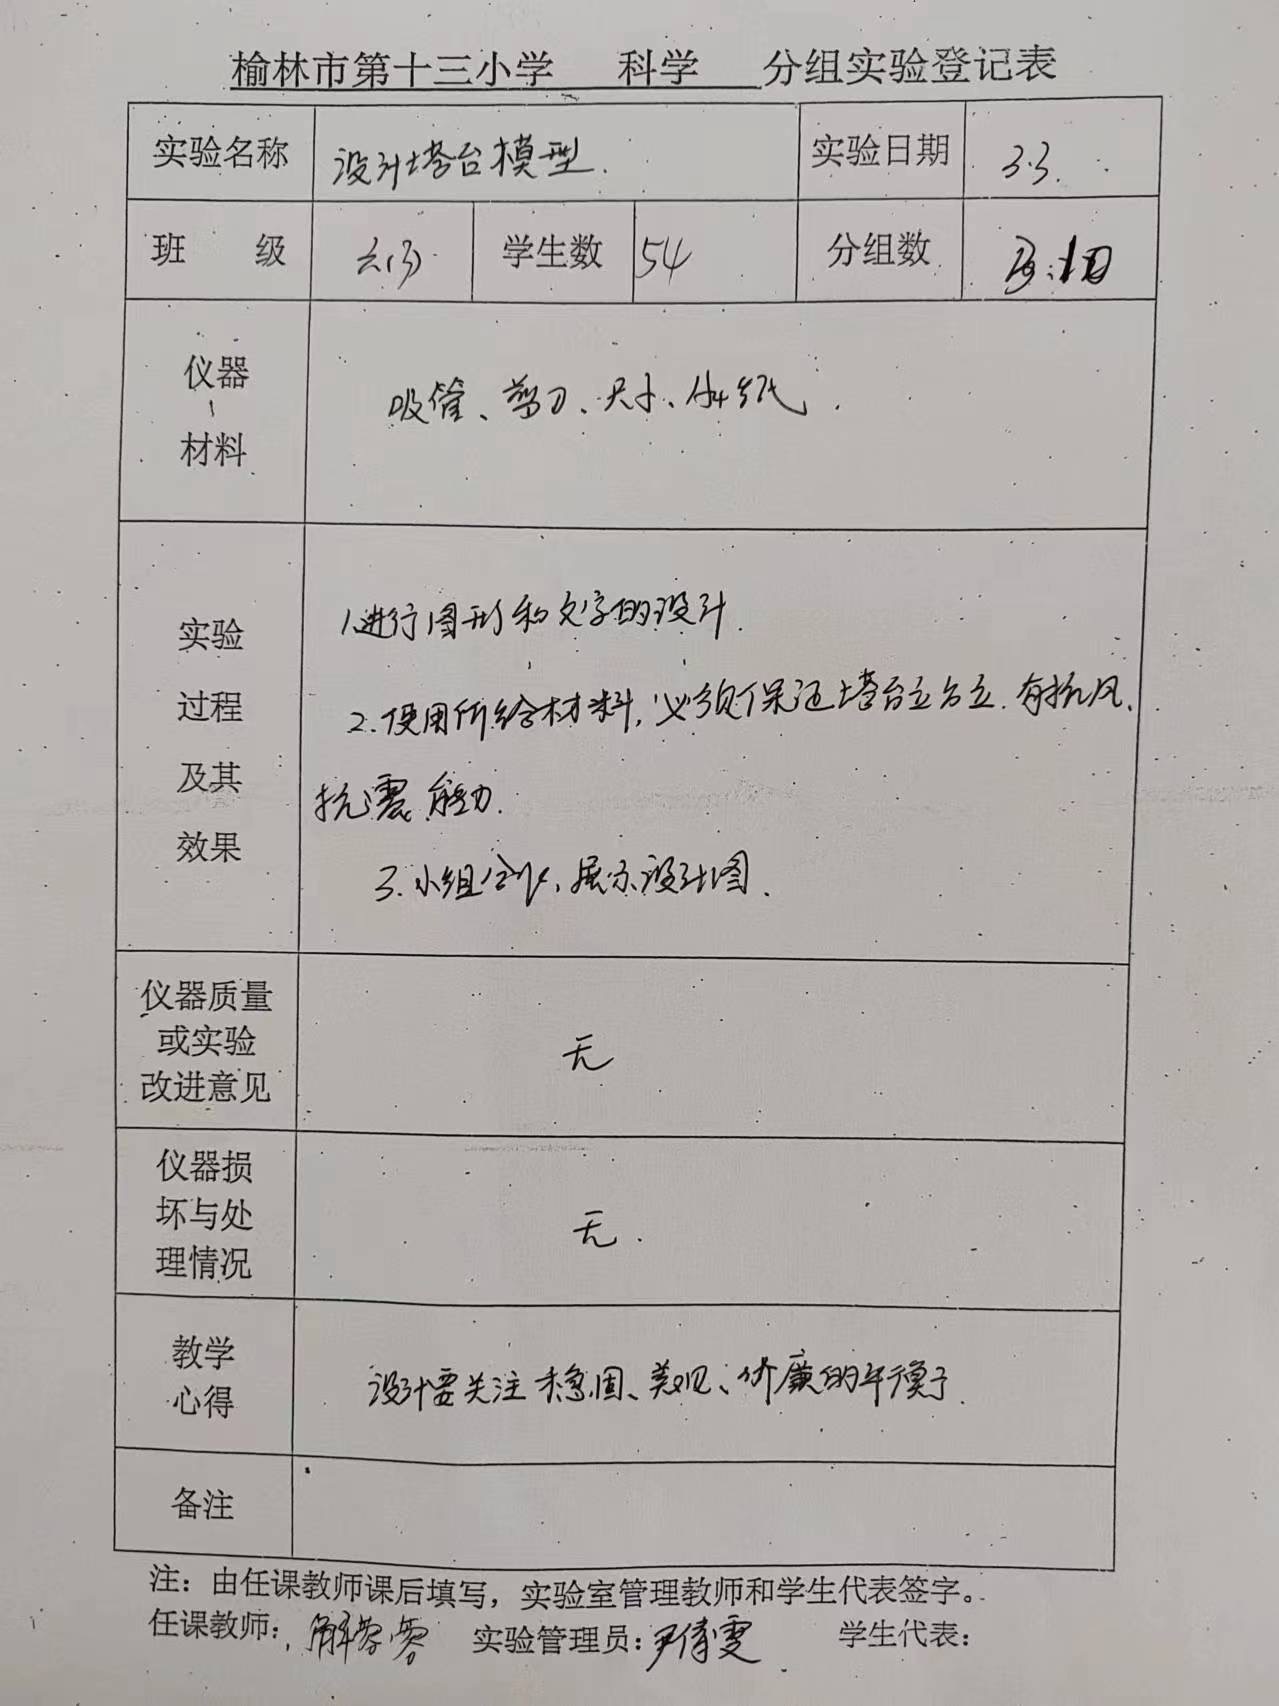 榆林市第十三小学 科学 分组实验登记表
实验名称 设计塔台模型. 实验日期 3.3.
班 级 六(3) 学生数 54 分组数
仪器
、
材料
吸管、剪刀、尺子、A4纸.
实验
过程
及其
效果
1.进行图形和文字的设计.
2.使用所给材料,必须保证塔台立, 有抗风、
抗震能力.
3.小组合作,展示设计图.
仪器质量
或实验
改进意见
无
仪器损
坏与处
理情况
无.
教学
心得
设计需关注稳固、美观、价廉的平衡.
备注
注：由任课教师课后填写，实验室管理教师和学生代表签字。
任课教师： 解蓉蓉 实验管理员：尹倩雯 学生代表：